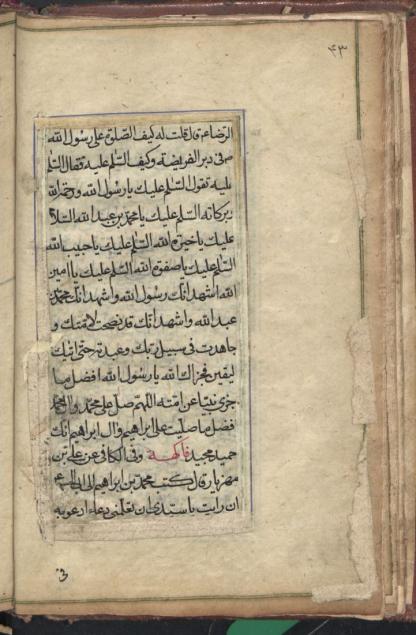 ۴۳
الرضا ع قال قلت له كيف الصلوة على رسول الله
ص فى دبر الفريضة وكيف السّلم عليه فقال السّلم
عليه تقول السّلم عليك يا رسول الله ورحمة الله
وبركاته السّلم عليك يا محمد بن عبد الله السّلام
عليك يا خيرة الله السّلم عليك يا حبيب الله
السّلم عليك يا صفوة الله السّلم عليك يا امين
الله اشهد انّك رسول الله واشهد انّك محمّد بن
عبد الله واشهد انّك قد نصحت لامّتك و
جاهدت فى سبيل ربّك وعبدته حتّى اتيك
ليقين فجزاك الله يا رسول الله افضل ما
جزى نبيّا عن امّته اللّهم صلّ على محمّد وال محمّد
فضل ما صلّيت على ابراهيم وال ابراهيم انّك
حميد مجيد فاكهة وفى الكافى عن على بن
مهزيار قال كتب محمد بن ابراهيم الى ع
ان رايت يا سيّدى ان تعلّمنى دعاء ادعو به
فى